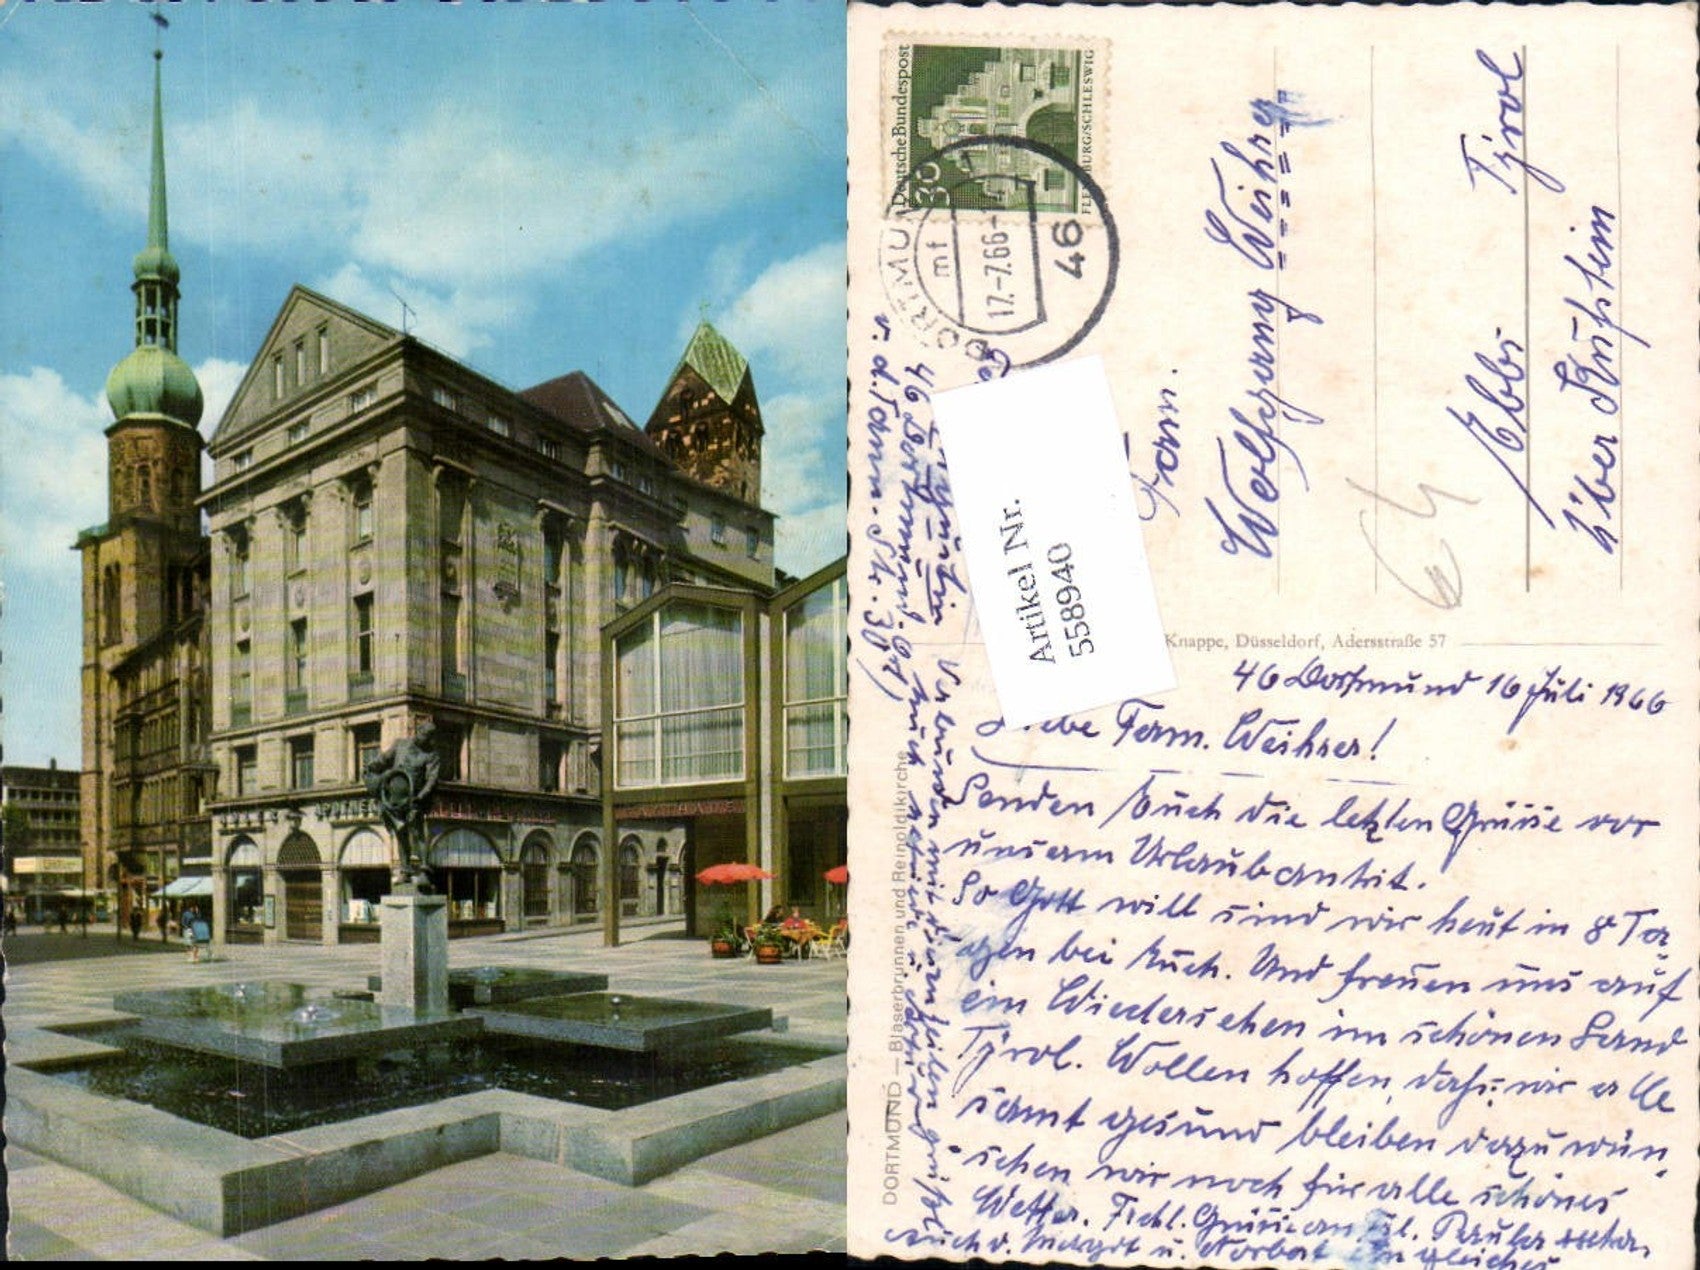 APOTHEKE
Deutsche Bundespost
30
FLENSBURG/SCHLESWIG
DORTMUND
mf
17.-7.66-
46
Fam.
Wolfgang Weihrer
Ebbs Tyrol
über Kufstein
Artikel Nr.
558940
Knappe, Düsseldorf, Adersstraße 57
DORTMUND — Bläserbrunnen und Reinoldikirche
46 Dortmund 16 Juli 1966
Liebe Fam. Weihrer!
Senden Euch die letzten Grüsse vor
unserm Urlaubantrit.
So Gott will sind wir heut in 8 Ta-
gen bei Euch. Und freuen uns auf
ein Wiedersehen im schönen Land
Tyrol. Wollen hoffen, dass wir alle
samt gesund bleiben dazu wün-
schen wir noch für alle schönes
Wetter.
Auch v. Margot u. Norbert
46 Dortmund
v. d. Tann-Str. 38)
Verbunden mit diesen Zeilen grüßt